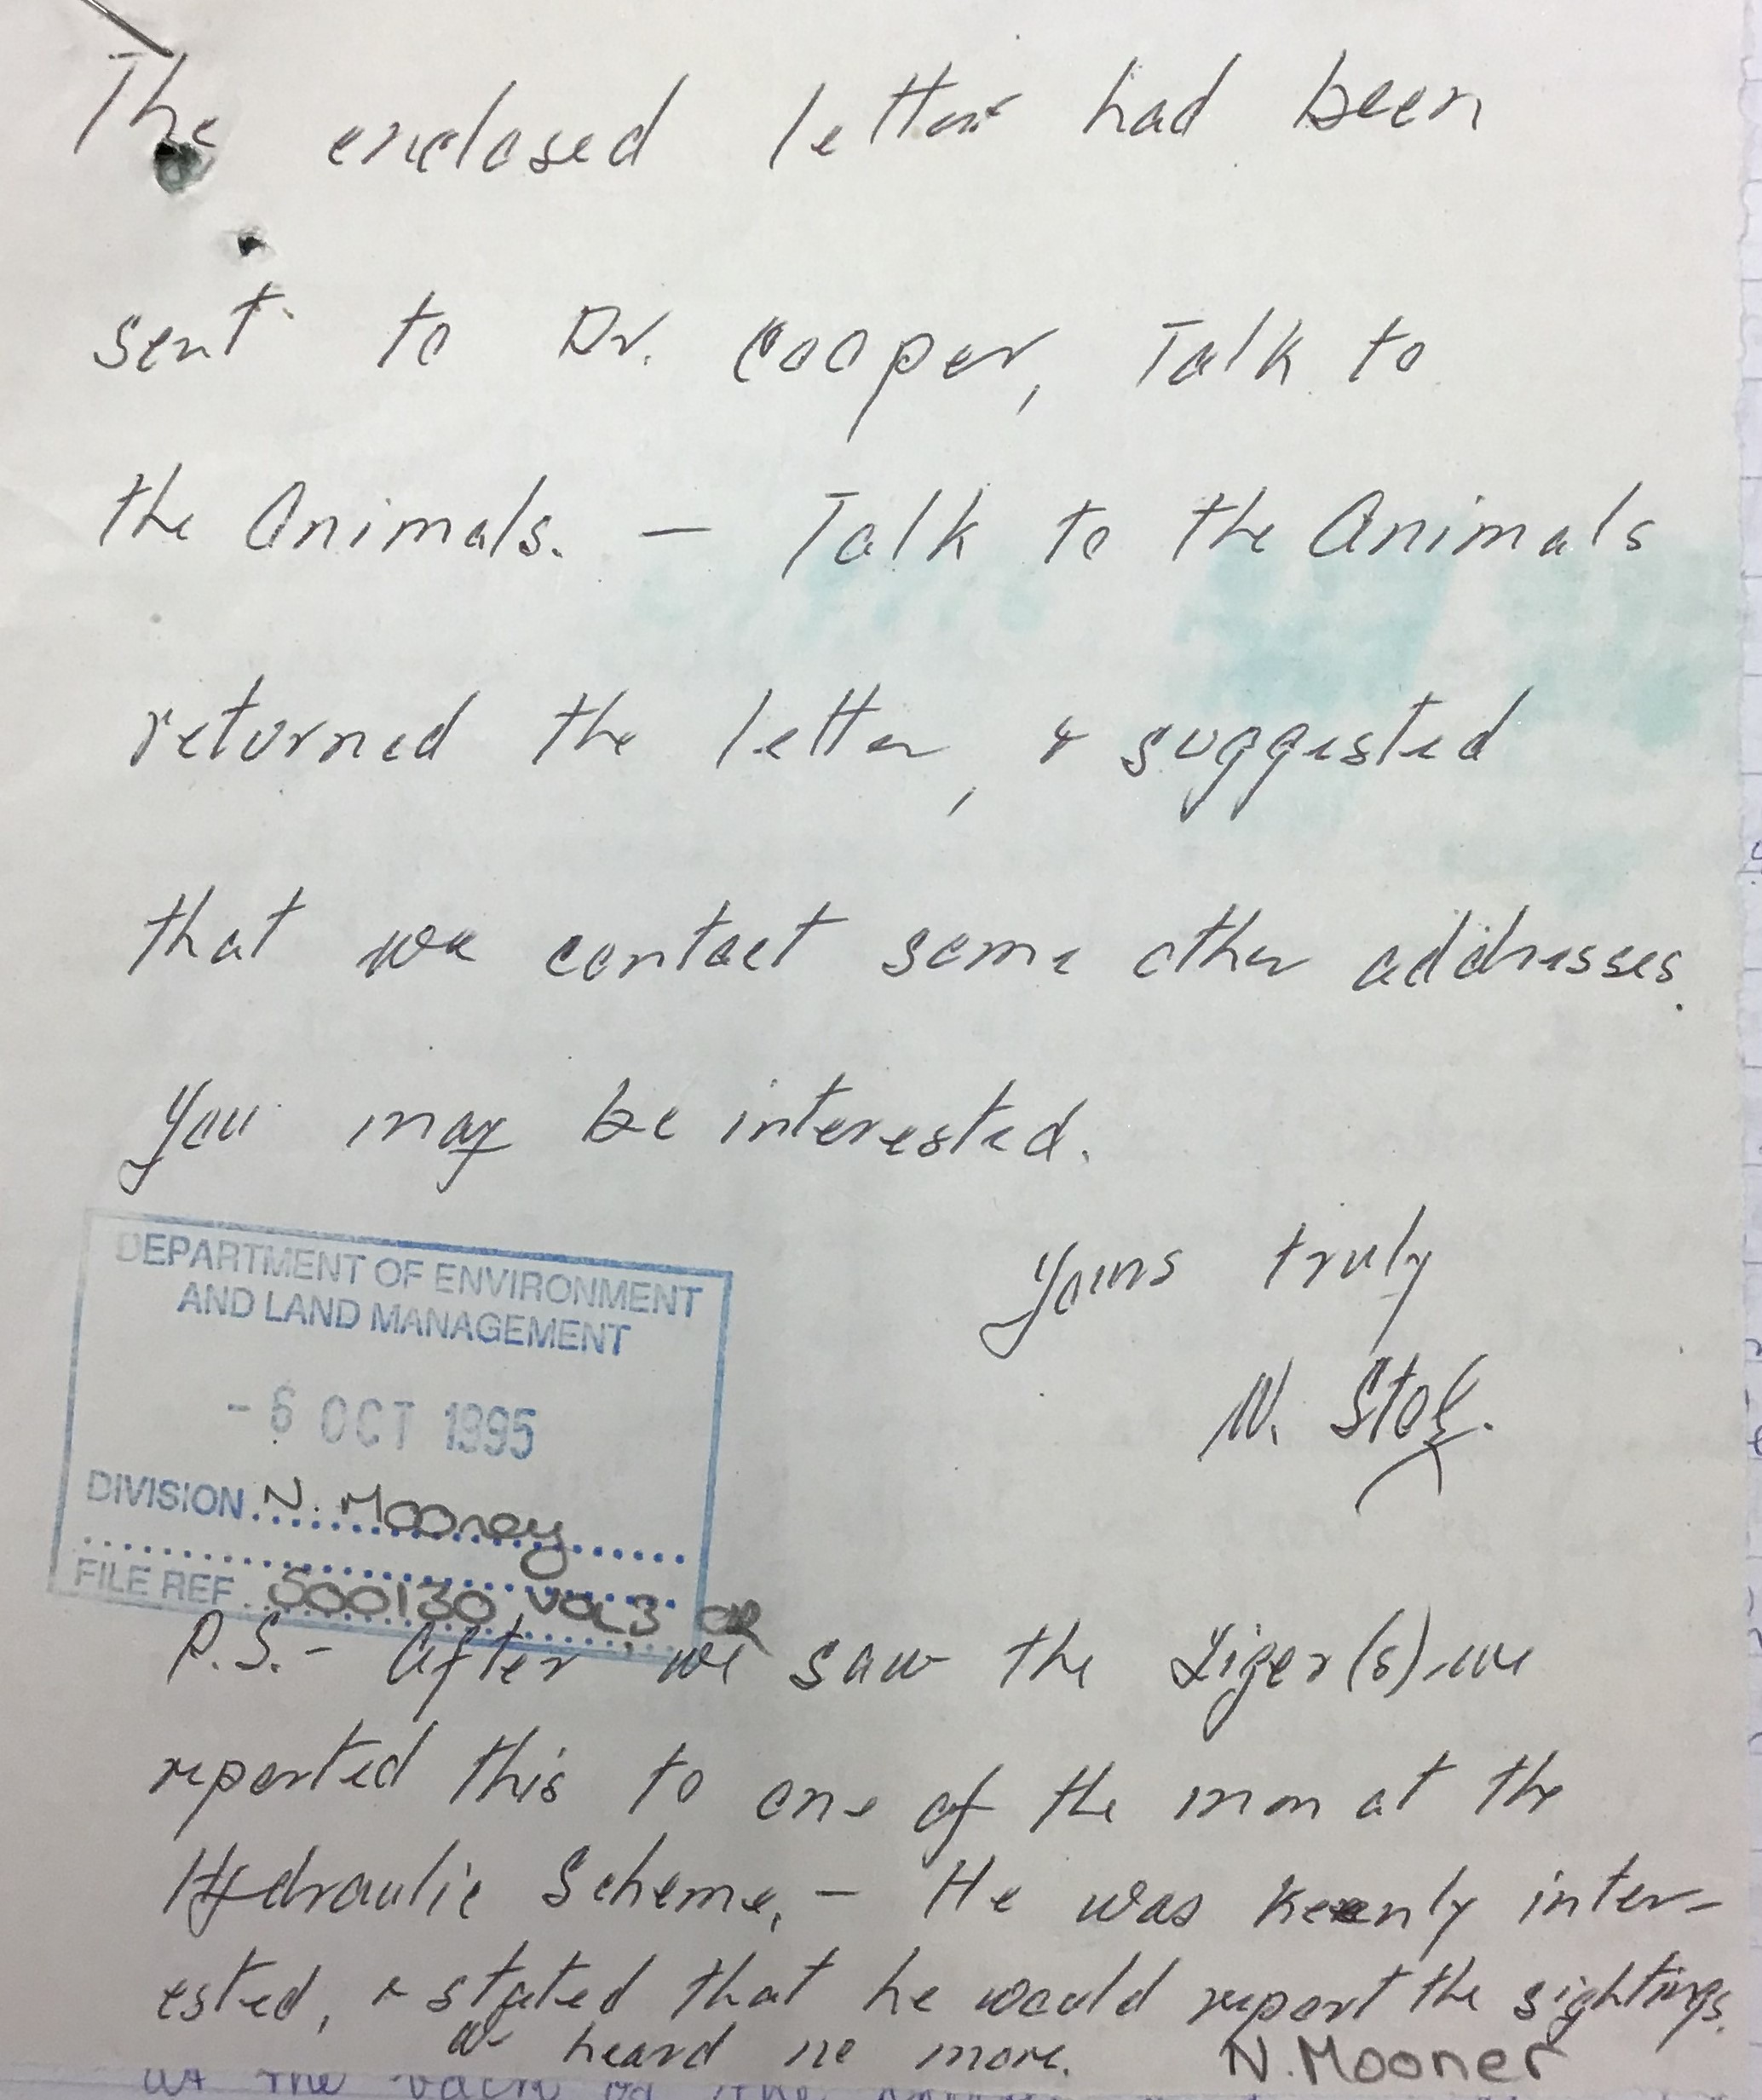 The enclosed letter had been
sent to Dr. Cooper, Talk to
the Animals. — Talk to the Animals
returned the letter, & suggested
that we contact some other addresses.
You may be interested.
Yours truly
N. Stol.
DEPARTMENT OF ENVIRONMENT
AND LAND MANAGEMENT
- 6 OCT 1995
DIVISION N. Mooney
FILE REF. 500130 VOL3
P.S. - After we saw the Tiger(s) we
reported this to one of the men at the
Hydraulic Scheme, - He was keenly inter-
ested, & stated that he would report the sightings.
We heard no more. N. Mooner